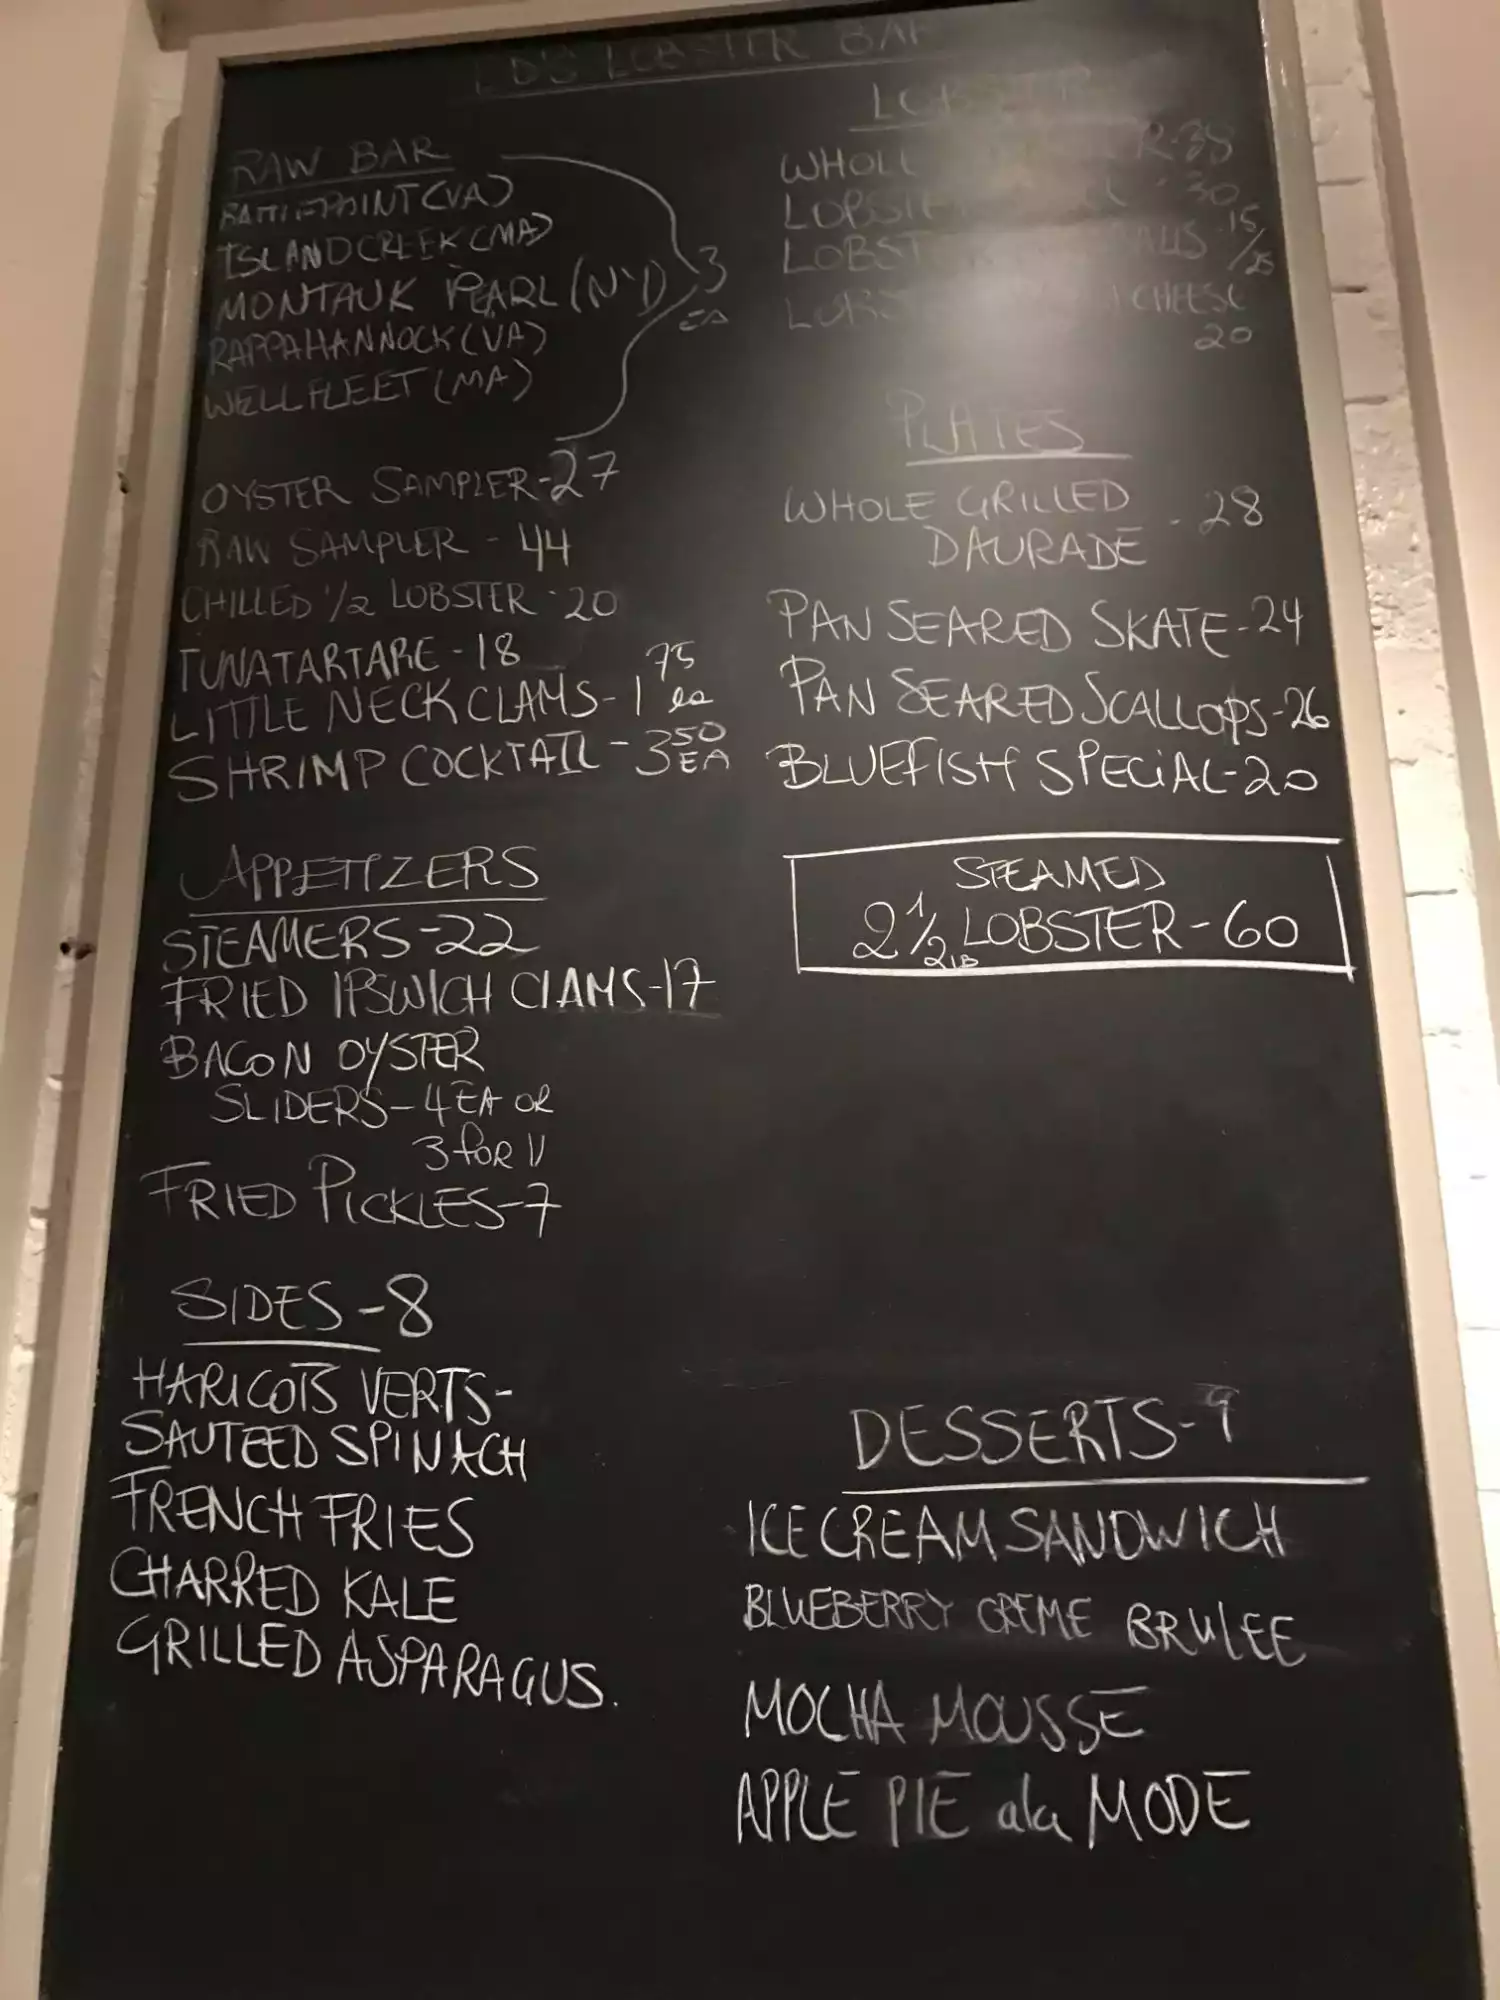 ED'S LOBSTER BAR
RAW BAR
BATTLEPOINT (VA)
ISLAND CREEK (MA)
MONTAUK PEARL (NY)
RAPPAHANNOCK (VA)
WELLFLEET (MA)
3
EA
OYSTER SAMPLER-27
RAW SAMPLER - 44
CHILLED 1/2 LOBSTER - 20
TUNA TARTARE - 18
LITTLE NECK CLAMS - 1 75 ea
SHRIMP COCKTAIL - 3 50 EA
APPETIZERS
STEAMERS-22
FRIED IPSWICH CLAMS-17
BACON OYSTER
SLIDERS-4 EA OR
3 for 11
FRIED PICKLES-7
SIDES-8
HARICOTS VERTS-
SAUTEED SPINACH
FRENCH FRIES
CHARRED KALE
GRILLED ASPARAGUS.
LOBSTER
WHOLE
LOBSTER - 30
LOBSTER 15/25
CHEESE
20
PLATES
WHOLE GRILLED
DAURADE - 28
PAN SEARED SKATE-24
PAN SEARED SCALLOPS-26
BLUEFISH SPECIAL-20
STEAMED
2 1/2 LB LOBSTER-60
DESSERTS-9
ICE CREAM SANDWICH
BLUEBERRY CREME BRULEE
MOCHA MOUSSE
APPLE PIE ala MODE